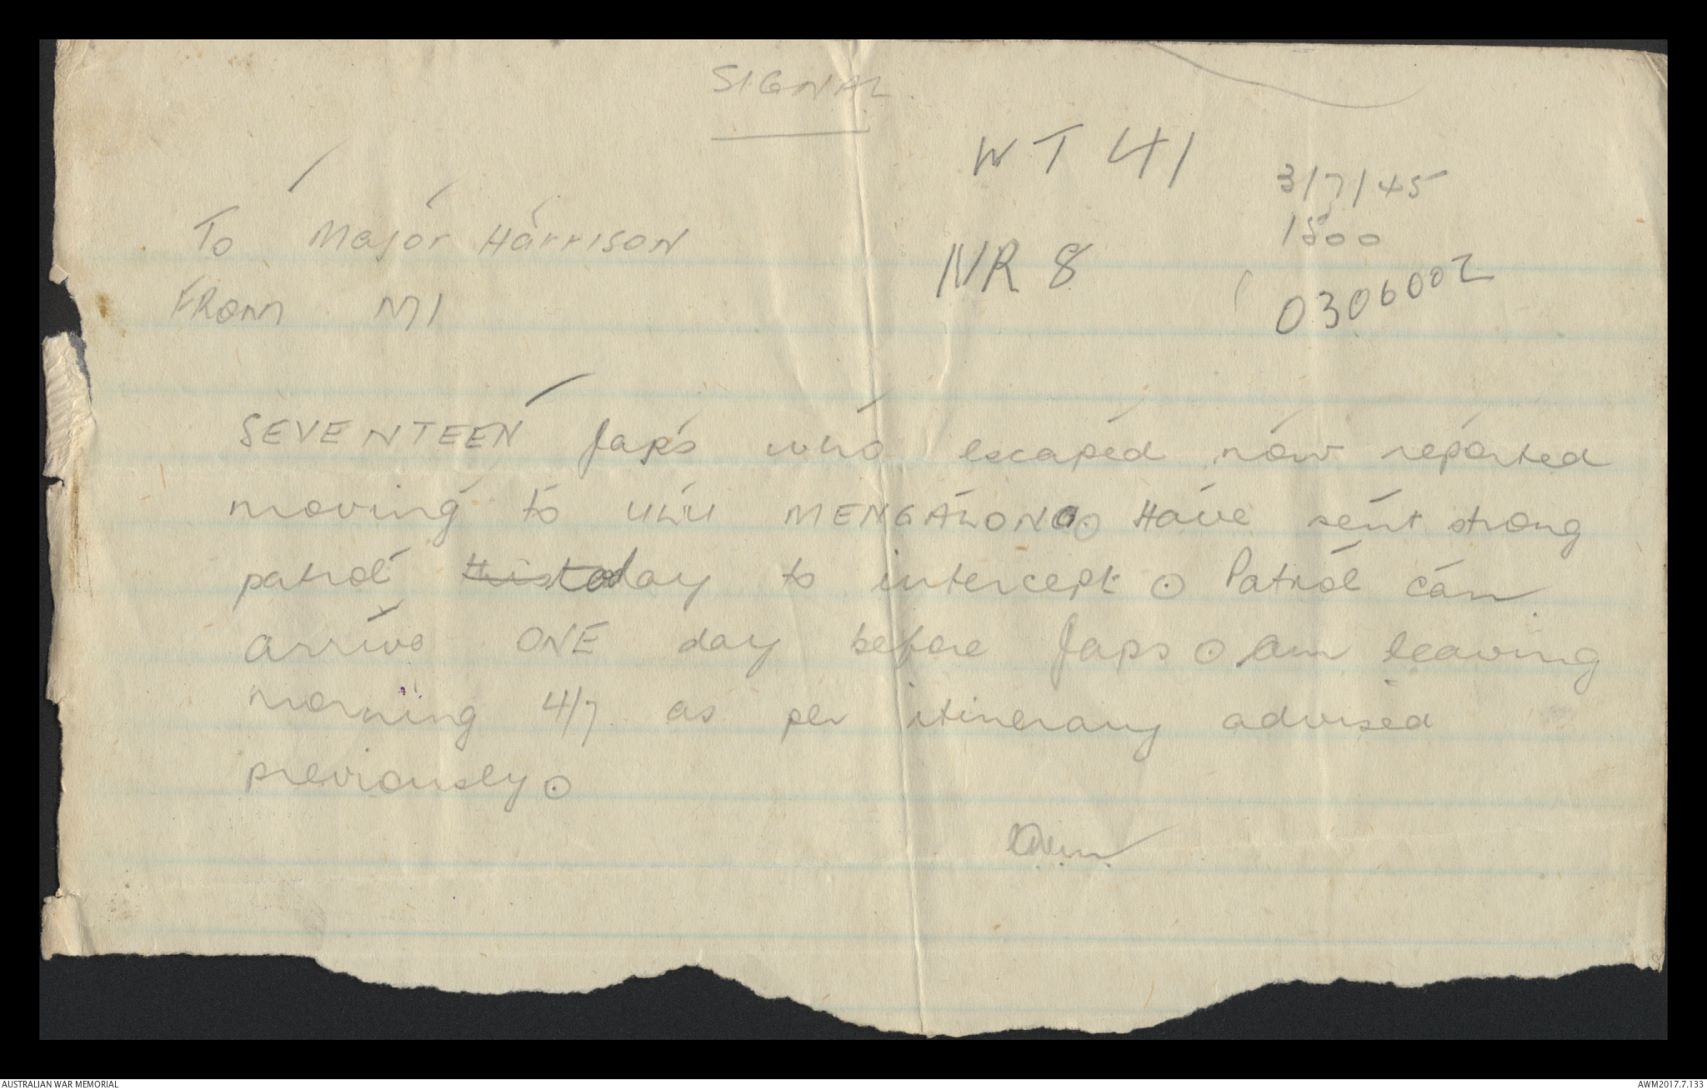 SIGNAL
WT 41
3/7/45
1500
To Major Harrison
NR 8
030600Z
FROM M1
SEVENTEEN Japs who escaped now reported
moving to ULU MENGALONG. Have sent strong
patrol today to intercept. Patrol can
arrive ONE day before Japs. Am leaving
morning 4/7 as per itinerary advised
previously.
AUSTRALIAN WAR MEMORIAL
AWM2017.7.133